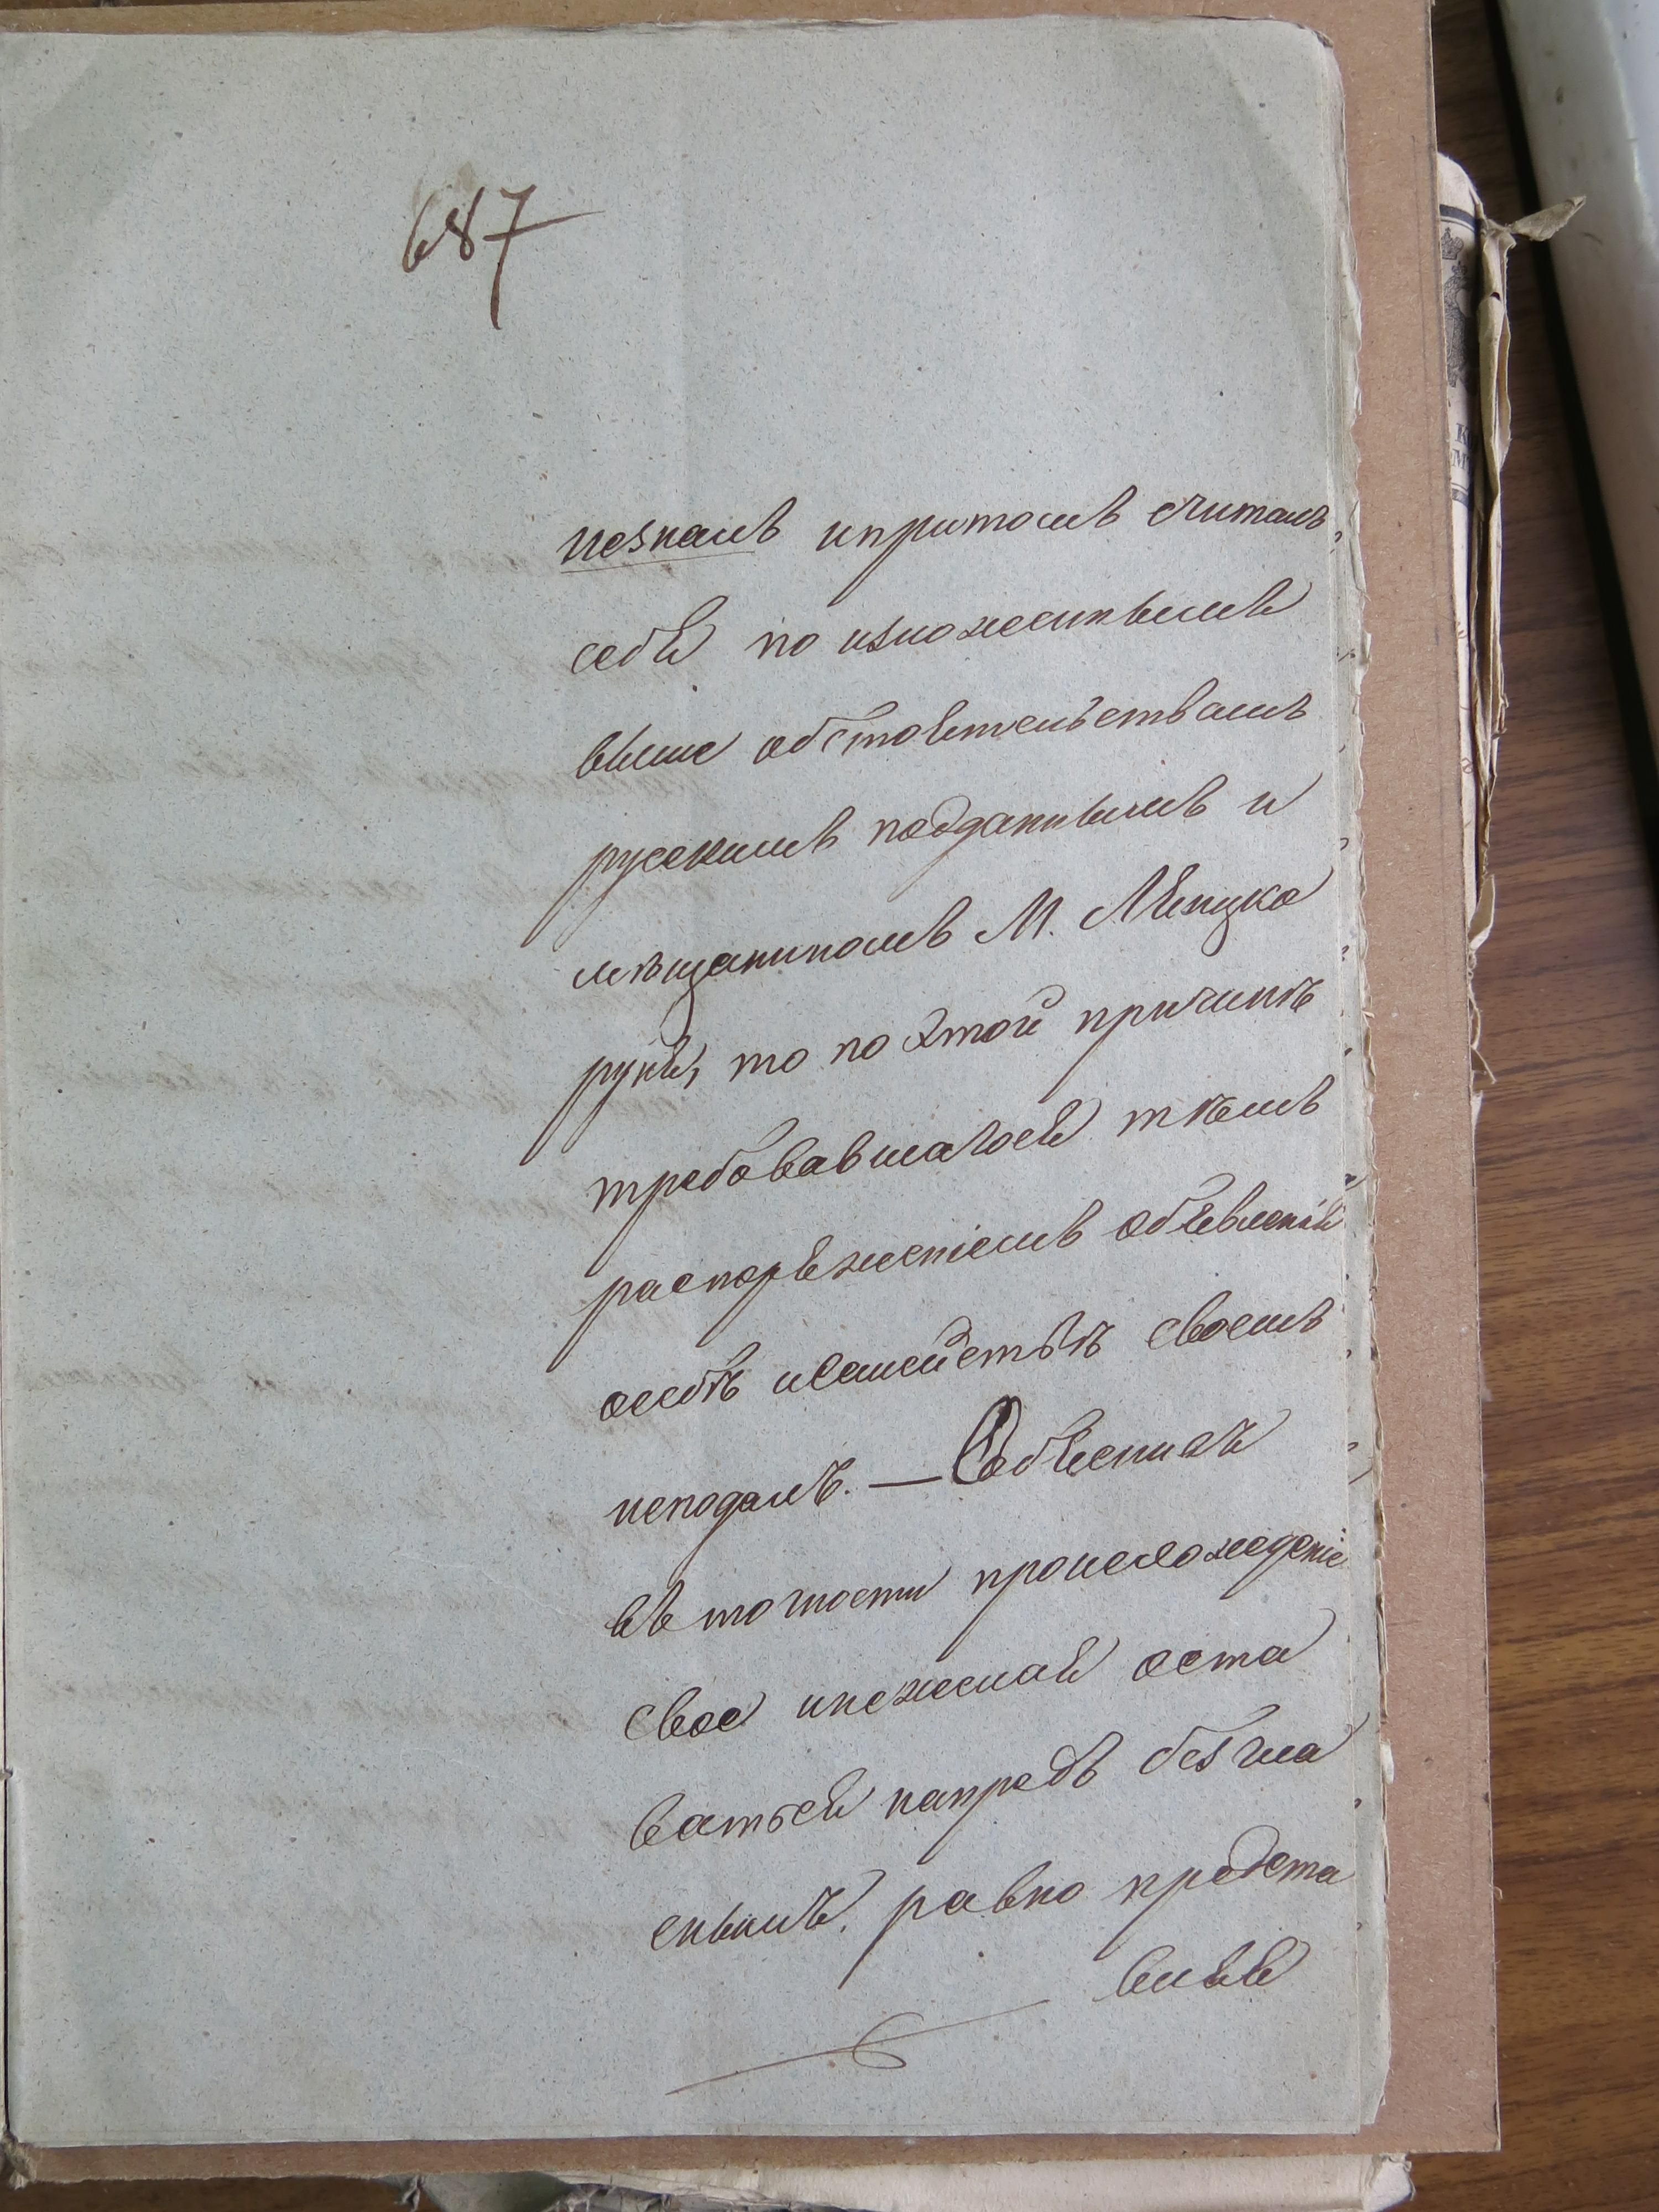 687
незналъ ипритомъ считалъ
себя по изложеннымъ
выше обстоятельствамъ
русскимъ подданнымъ и
мѣщаниномъ М. Ляцко
руня, то по этой причинѣ
требовавшагося тѣмъ
распоряженіемъ объявленія
осебѣ исемействѣ своемъ
неподалъ. — Объяснивъ
въ точности происхожденіе
свое инежелая оста
ваться напредъ безгла
снымъ, равно предста
вляя